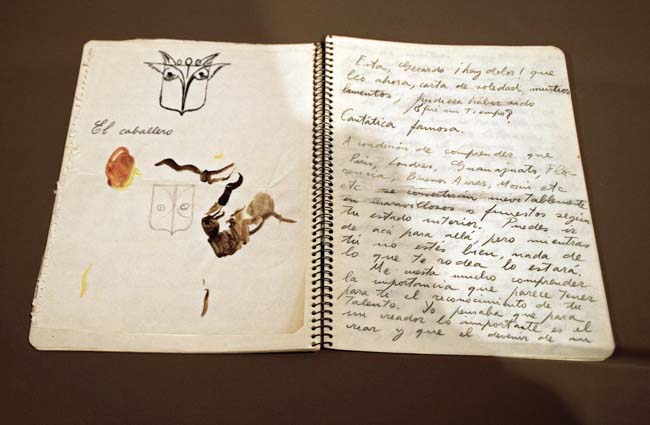 El caballero
Esta, Gerardo ¡hay dolor! que
leo ahora, carta de soledad,
lamentos, pudiera haber sido
¿fué mi tiempo?
Cantática famosa.
A condición de comprender que
París, Londres, Guanajuato, Flo-
rencia, Buenos Aires, etc
etc se convertirán inevitablemente
en maravillosos o funestos según
tu estado interior. Puedes ir
de acá para allá, pero mientras
tú no estés bien, nada de
lo que te rodea lo estará.
Me cuesta mucho comprender
la importancia que parece tener
para ti el reconocimiento de tu
talento. Yo pensaba que para
un creador lo importante es el
crear y que el devenir de su